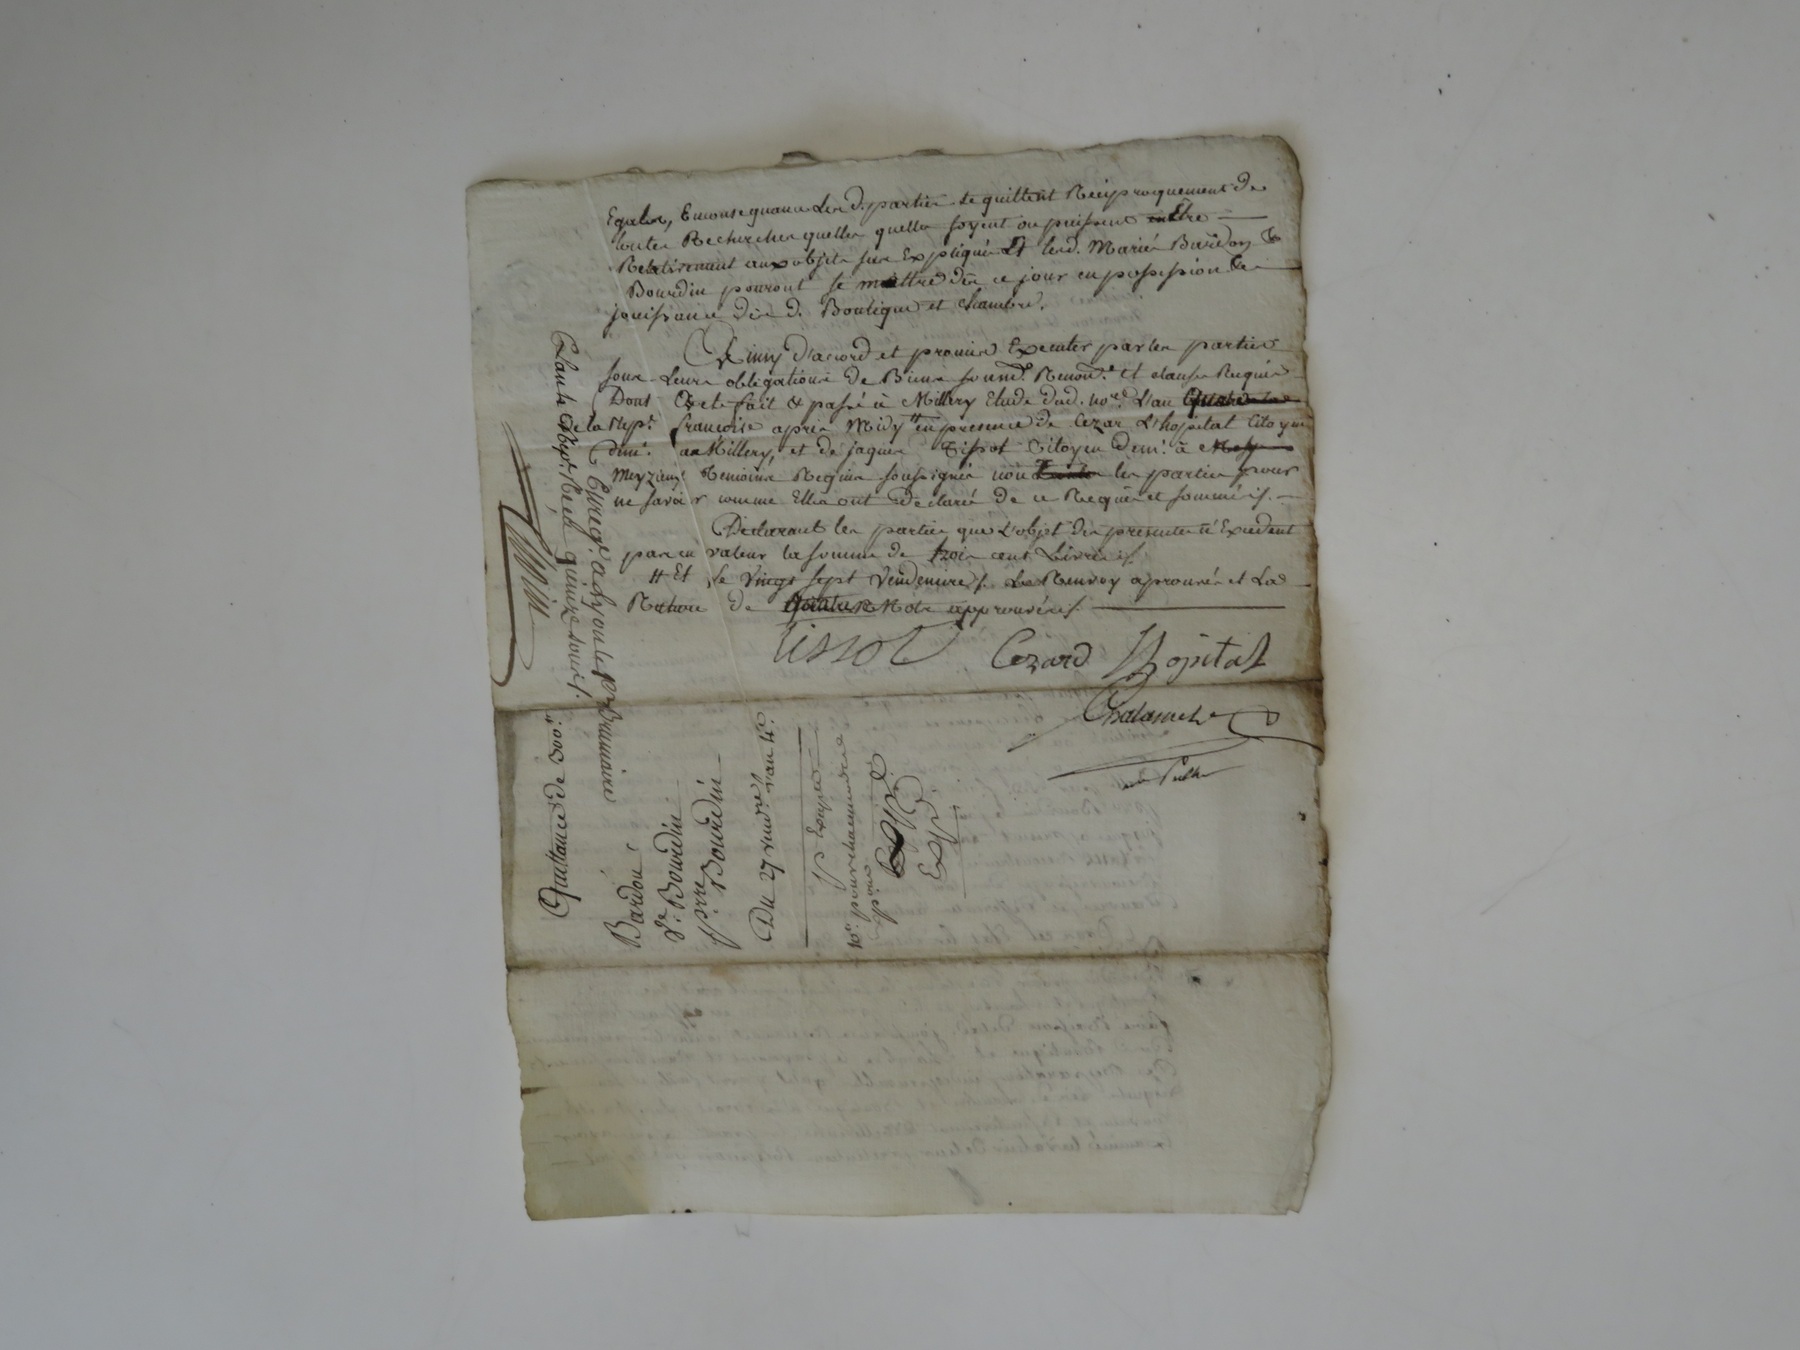 Egales, Enconsequance Les d. partie se quittent Reciproquement de
toutes Recherches quelles quelles soyent ou puissent Etre
Relativement aux objets sus Expliqués Et lesd. Mariés Bardon &
Bourdin pouront se mettre dès ce jour en possession &
jouissance des d. Boutique et chambre.
Ainsy d'acord et promis Executer par les parties
sous Leurs obligations de Biens soum.s Renon.s et clauses Requises
Dont Acte fait & passé à Millery Etude dud. no.re L'an
de la Rep.e françoise après Midy # en presence de Cezar L'hopital Citoyen
dem.t à Millery, et de jaques Tissot Citoyen dem.t à
Meyzieux Temoins Requis soussignés non les parties pour
ne savoir comme Elles ont declaré de ce Requises et sommées /.
Declarant les parties que L'objet des presentes n'Excedent
pas en valeur la somme de trois cent Livres /.
# Et le Vingt sept Vendemiere /. Le Renvoy aprouvés et La
Rature de Mots approuvées /.
tissot Cezard Lhopital
Quittance de 300.#
Bardon
V.e Bourdin
Pr.re Bourdin
Du 27 vend.re L'an 4.e
Expedié
Exp.é
Enreg.é à Lyon le Brumaire
L'an 4 Rep.n Reçu quinze sous /.